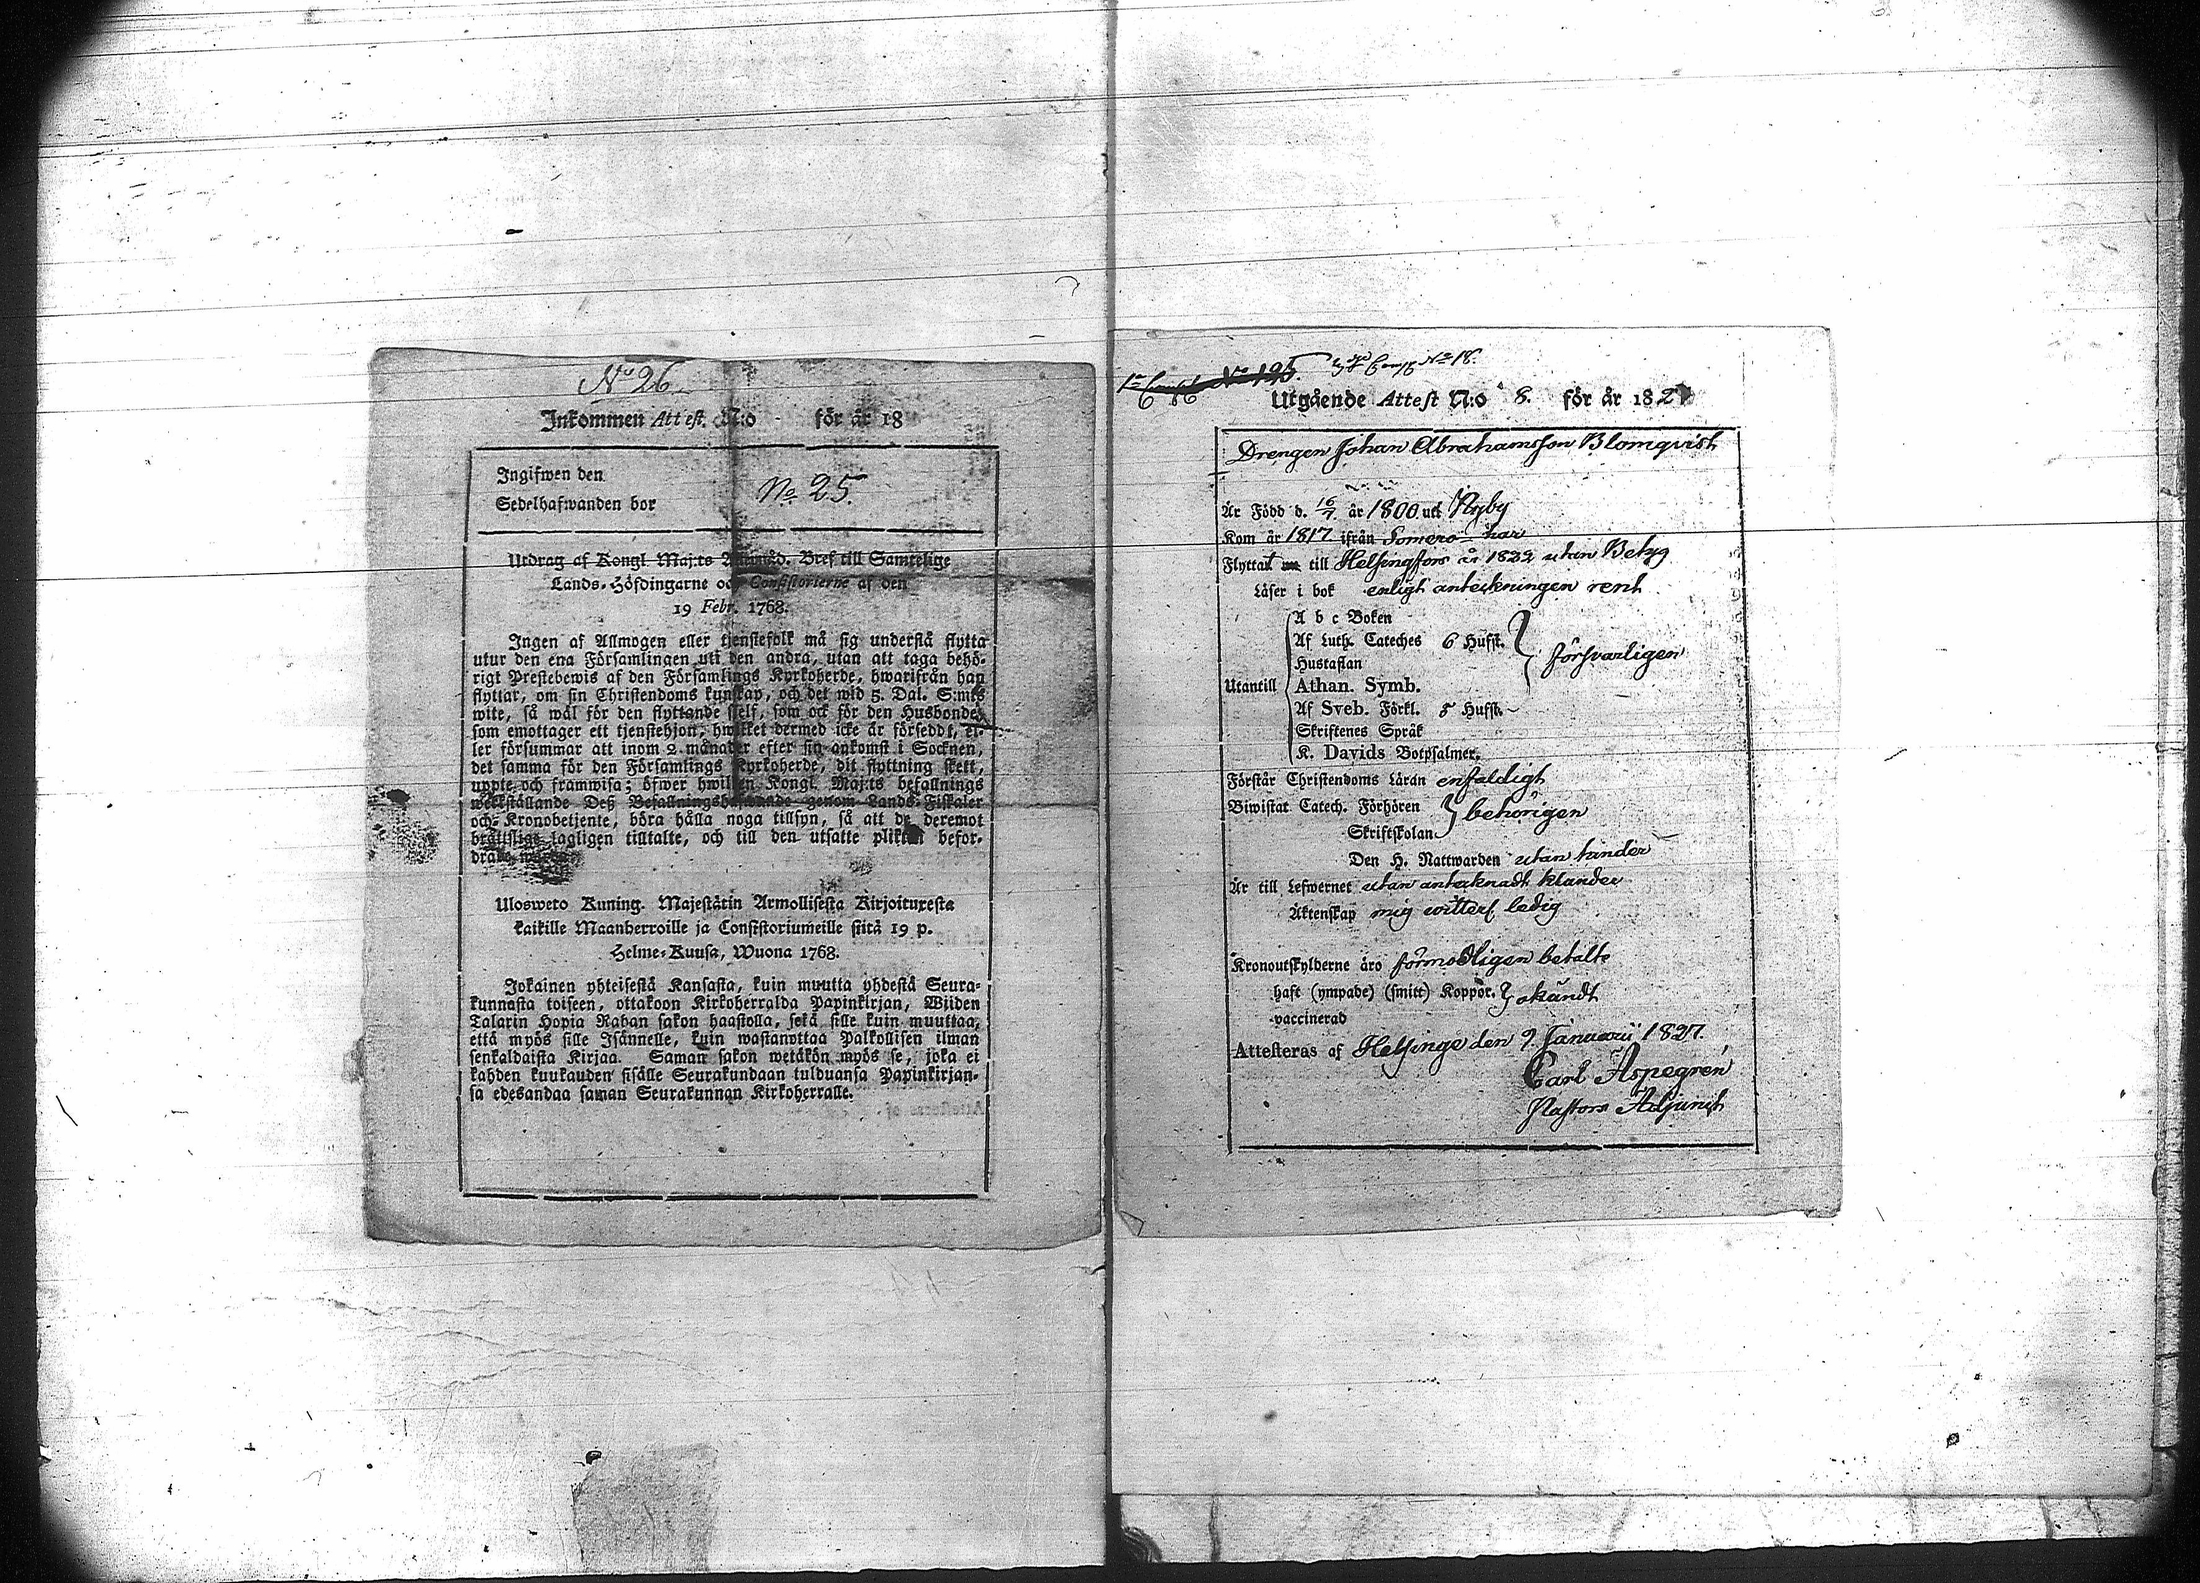 No 26.
Inkommen Attest. N:o för år 18
Ingifwen den
Sedelhafwanden bor
No 25.
Utdrag af Kongl Maj:ts Allmäd. Bref till Samtelige
Lands-Höfdingarne och Consistorierne af den
19 Febr. 1768.
Ingen af Allmogen eller tjenstefolk må sig understå flytta
utur den ena Församlingen uti den andra, utan att taga behö-
rigt Prestebewis af den Församlings Kyrkoherde, hwarifrån han
flyttar, om sin Christendoms kunskap, och det wid 5. Dal. S:mts
wite, så wäl för den flyttande sjelf, som ock för den Husbonde,
som emottager ett tjenstehjon, hwilket dermed icke är försedt, el-
ler försummar att inom 2 månader efter sin ankomst i Socknen,
det samma för den Församlings Kyrkoherde, dit flyttning skett,
uppte och framwisa; öfwer hwilken Kongl. Maj:ts befallnings
werkställande Deß Befallningshafwande genom Lands-Fiskaler
och Kronobetjente, böra hålla noga tillsyn, så att de deremot
brottslige lagligen tilltalte, och till den utsatte plikten befor-
drade warda.
Ulosweto Kuning. Majestätin Armollisesta Kirjoituxesta
kaikille Maanherroille ja Consistoriumeille siitä 19 p.
Helme-Kuusa, Wuona 1768.
Jokainen yhteisestä Kansasta, kuin muutta yhdestä Seura-
kunnasta toiseen, ottakoon Kirkoherralda Papinkirjan, Wiiden
Talarin Hopia Rahan sakon haastolla, sekä sille kuin muuttaa,
että myös sille Isännelle, kuin wastanottaa Palkollisen ilman
senkaldaista Kirjaa. Saman sakon wetäkön myös se, joka ei
kahden kuukauden sisälle Seurakundaan tulduansa Papinkirjan-
sa edesandaa saman Seurakunnan Kirkoherralle.
No 195. No 18.
Utgående Attest N:o 8. för år 182
Drengen Johan Abrahamsson Blomqvist
Är Född d. 16/7 år 1800 uti Nyby
Kom år 1817 ifrån Somero har
Flyttat till Helsingfors år 1822 utan Betyg
Läser i bok enligt anteckningen rent
A b c Boken
Af Luth. Cateches 6 Hufst.
Hustaflan
försvarligen
Utantill Athan. Symb.
Af Sveb. Förkl. 5 Hufst.
Skriftenes Språk
K. Davids Botpsalmer.
Förstår Christendoms Läran enfaldigt
Biwistat Catech. Förhören
behörigen
Skriftskolan
Den H. Nattwarden utan hinder
Är till Lefwernet utan antecknadt klander
Äktenskap mig vitterl. ledig
Kronoutskylderne äro förmodligen betalte
haft (ympade) (smitt) Koppor. okändt
vaccinerad
Attesteras af Helsinge den 9 Januarii 1827.
Carl Aspegrén
Pastors Adjunct